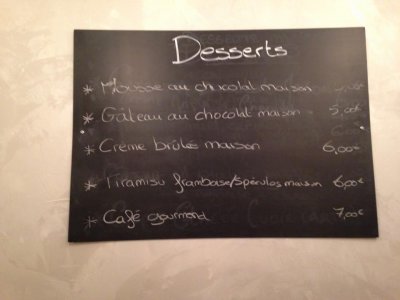 Desserts
* Mousse au chocolat maison
* Gâteau au chocolat maison 5,00€
* Crème brûlée maison 6,00€
* Tiramisu framboise/Spéculos maison 6,00€
* Café gourmand 7,00€